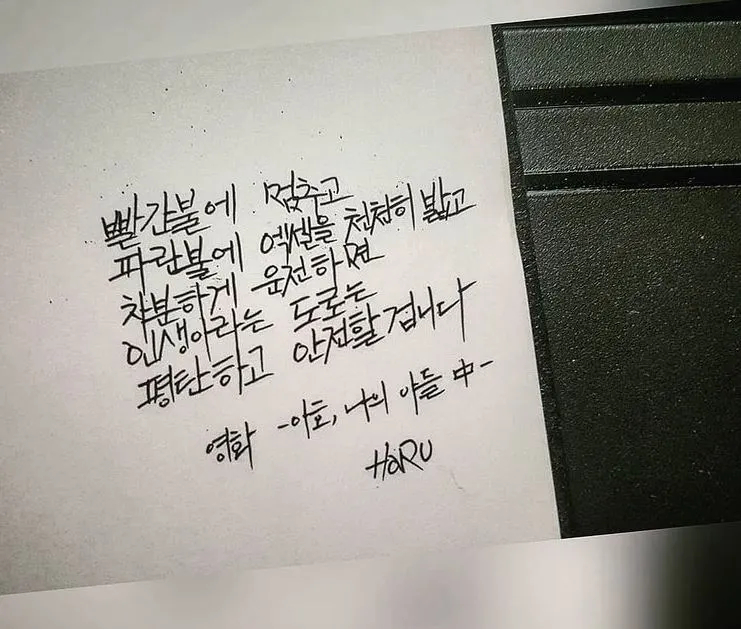 빨간불에 멈추고
파란불에 엑셀을 천천히 밟고
차분하게 운전하면
인생이라는 도로는
평탄하고 안전할겁니다
영화 -아호, 나의 아들 中-
HaRU